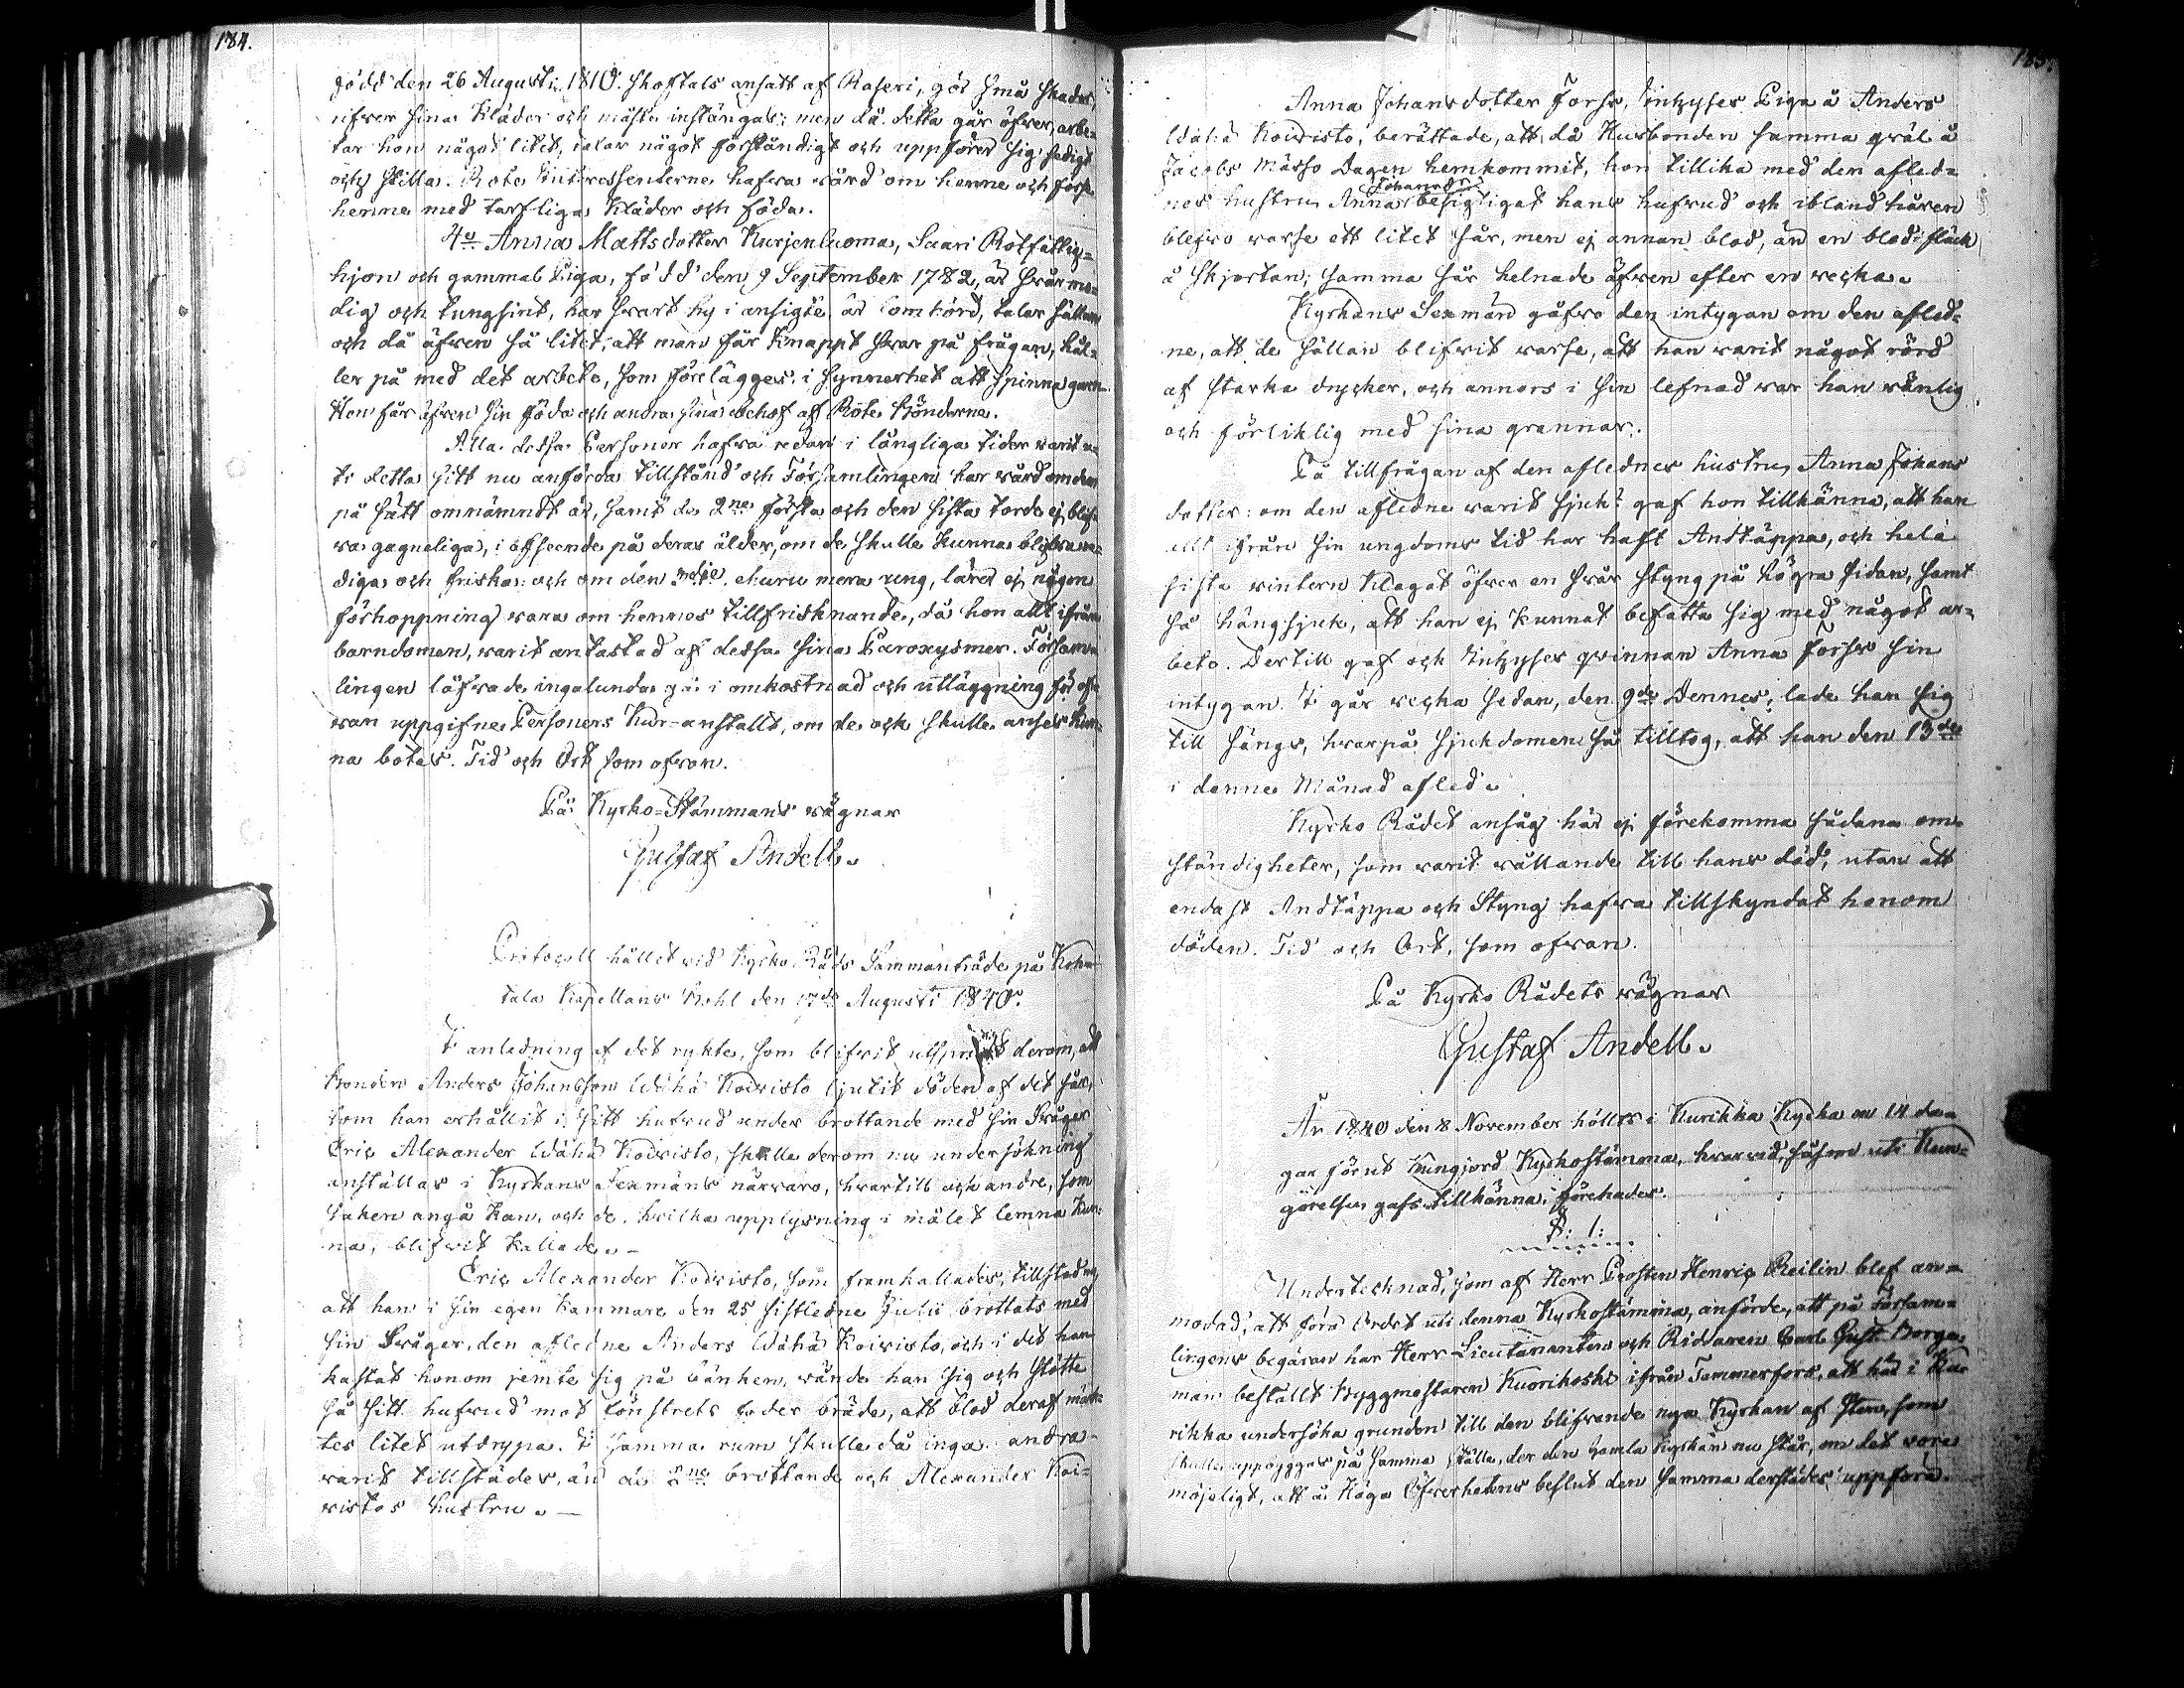 184.
född den 26 Augusti 1810. Skoftals ansatt af Raseri, gör små skador,
rifver sina Kläder och måste instängas: men då detta går öfver, arbe-
tar hon något litet, talar något förståndigt och uppförer sig sedigt
och stilla. Rote Intressenterne hafva vård om henne och förse
henne med tarfliga Kläder och föda.
4o Anna Mattsdotter Kurjenluoma, Saari Rotfattig-
hjon och gammal Piga, född den 9 September 1782, är svårmo-
dig och tungsint, har svart hy i ansigte, är lomhörd, talar sällan
och då äfven så litet, att man får knappt svar på frågan, hål-
ler på med det arbete, som förelägges, i synnerhet att spinna garn.
Hon får äfven sin föda och andra sina behof af Rote Bönderne.
Alla dessa Personer hafva redan i långliga tider varit u-
ti detta sitt nu anförda tillstånd och Församlingen har vård om dem
på sätt omnämndt är, samt de 2ne första och den sista torde ej blif-
va gagneliga, i afseende på deras ålder, om de skulle kunna blifva re-
diga och friska: och om den 3dje, ehuru mera ung, lärer ej någon
förhoppning vara om hennes tillfrisknande, då hon allt ifrån
barndomen, varit antastad af dessa sina Paroxysmer. Försam-
lingen låfvade ingalunda gå i omkostnad och utläggning för of-
van uppgifne Personers Kur-anstallt, om de och skulle anses kun-
na botas. Tid och Ort som ofvan.
På Kyrko-Stämmans vägnar
Gustaf Andell.
Protocoll hållet vid Kyrko Råds Sammanträde på Koha-
tala Kapellans Bohl den 17de Augusti 1840.
I anledning af det rykte, som blifvit utspridt derom, att
Bonden Anders Johansson Wähä Koivisto ljutit döden af det sår,
som han erhållit i sitt hufvud under brottande med sin Svåger
Eric Alexander Wähä Koivisto, skulle derom nu undersökning
anställas i Kyrkans Sexmäns närvaro, hvartill och andre, som
saken angå kan, och de, hvilka upplysning i målet lemna kun-
na, blifvit kallade. —
Eric Alexander Koivisto, som framkallades, tillstod
att han i sin egen kammare den 25 sistledne Julii brottats med
sin Svåger, den aflidne Anders Wähä Koivisto, och i det han
kastat honom jemte sig på bänken, vände han sig och stötte
så sitt hufvud mot fönstrets foder bräde, att blod deraf måt-
tes litet utdrypa. I samma rum skulle då inga andra
varit tillstädes, än de 2ne brottande och Alexander Koi-
vistos hustru. —
185.
Anna Johansdotter Forss, Inhyses Piga å Anders
Wähä Koivisto, berättade, att, då Husbonden samma qväl å
Jacobs Mässo Dagen hemkommit, hon tillika med den afled-
nes hustru Anna Johansdr besigtigat hans hufvud och ibland håren
blefvo varse ett litet sår, men ej annan blod, än en blodfläck
å skjortan; samma sår helnade äfven efter en vecka.
Kyrkans Sexmän gåfvo den intygan om den afled-
ne, att de sällan blifvit varse, att han varit något rörd
af starka drycker, och annors i sin lefnad var han vänlig
och förliklig med sina grannar.
På tillfrågan af den aflednes hustru Anna Johans
dotter: om den afledne varit sjuk? gaf hon tillkänna, att han
allt ifrån sin ungdoms tid har haft Andtäppa, och hela
sista vintern klagat öfver en svår styng på högra sidan, samt
så hängsjuk, att han ej kunnat befatta sig med något ar-
bete. Dertill gaf och Inhyses qvinnan Anna Forss sin
intygan. I går vecka sedan, den 9de dennes, lade han sig
till sängs, hvarpå sjukdomen så tilltog, att han den 13de
i denne Månad afled.
Kyrko Rådet ansåg här ej förekomma sådana om-
ständigheter, som varit vållande till hans död, utan att
endast Andtäppa och Styng hafva tillskyndat honom
döden. Tid och Ort, som ofvan.
På Kyrko Rådets vägnar
Gustaf Andell.
År 1840 den 8 November hölts i Kurikka Kyrka en 14 da-
gar förut kungjord Kyrkostämma, hvarvid, såsom uti Kun-
görelsen gafs tillkänna, förehades.
§: 1:
Undertecknad, som af Herr Prosten Henric Reilin blef an-
modad, att föra Ordet uti denna Kyrkostämma, anförde, att på Försam-
lingens begäran har Herr Lieutenanten och Riddaren Carl Gust. Borg-
man beställt Byggmästaren Kuorikoski ifrån Tammerfors, att här i Ku-
rikka undersöka grunden till den blifvande nya Kyrkan af Sten, som
skulle uppbyggas på samma ställe, der den gamla Kyrkan nu står, om det vore
möjeligt, att å Höga Öfverhetens beslut den samma derstädes uppföra.